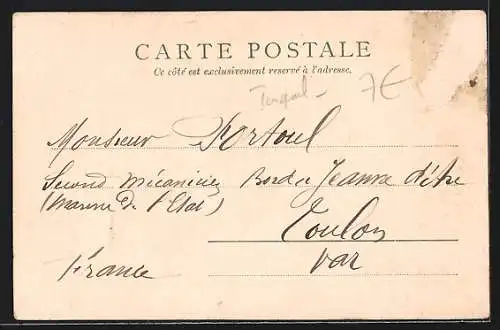 CARTE POSTALE
Ce côté est exclusivement reservé à l'adresse.
7€
Monsieur Portoul
Second Mécanicien Bord de Jeanne d'Arc
(Marine de l'Etat)
Toulon
Var
France